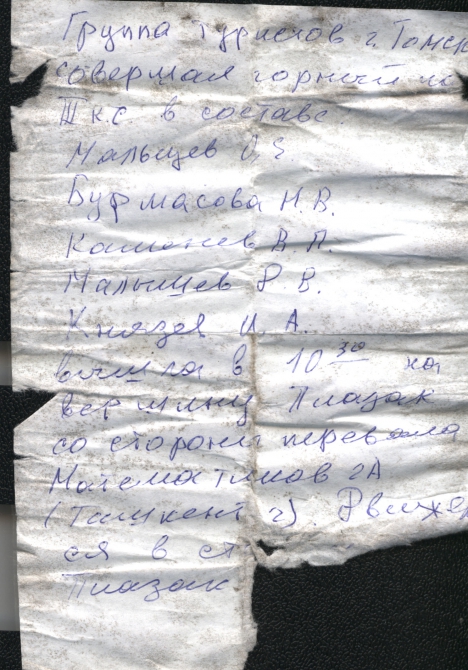 Группа туристов г. Томск
совершая горный по
III к.с. в составе.
Мальцев О.
Бурмасова Н. В.
В. П.
Малышев Р. В.
Князев И. А.
вышла в 10 30 на
вершину Пиазак
со стороны перевала
Математиков 2А
(Ташкент 2) Движе
ся в ст
Пиазак